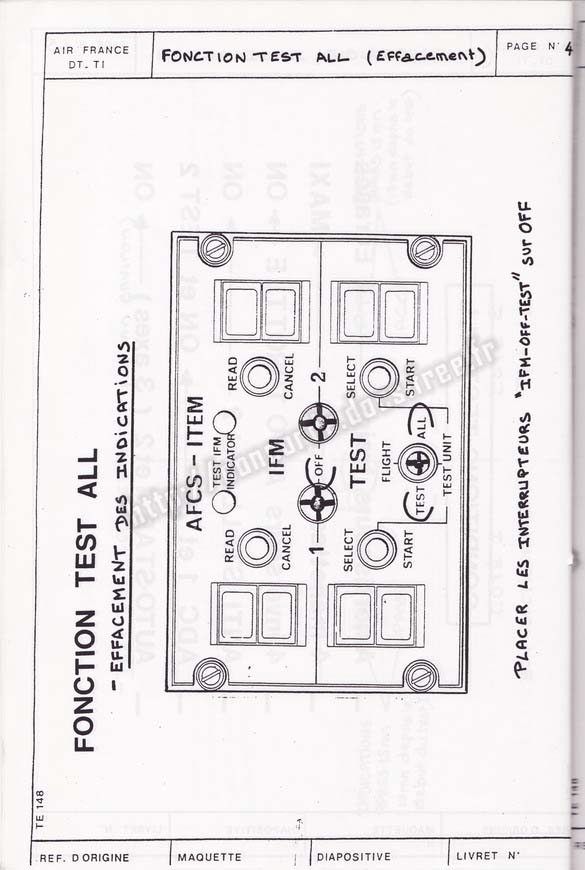 AIR FRANCE
DT.TI
FONCTION TEST ALL (Effacement)
PAGE N° 4
FONCTION TEST ALL
- EFFACEMENT DES INDICATIONS
AFCS - ITEM
READ
CANCEL
TEST IFM
INDICATOR
READ
CANCEL
IFM
1
OFF
2
TEST
SELECT
START
FLIGHT
TEST
ALL
TEST UNIT
SELECT
START
PLACER LES INTERRUPTEURS "IFM-OFF-TEST" sur OFF
TE 148
REF. D'ORIGINE
MAQUETTE
DIAPOSITIVE
LIVRET N°